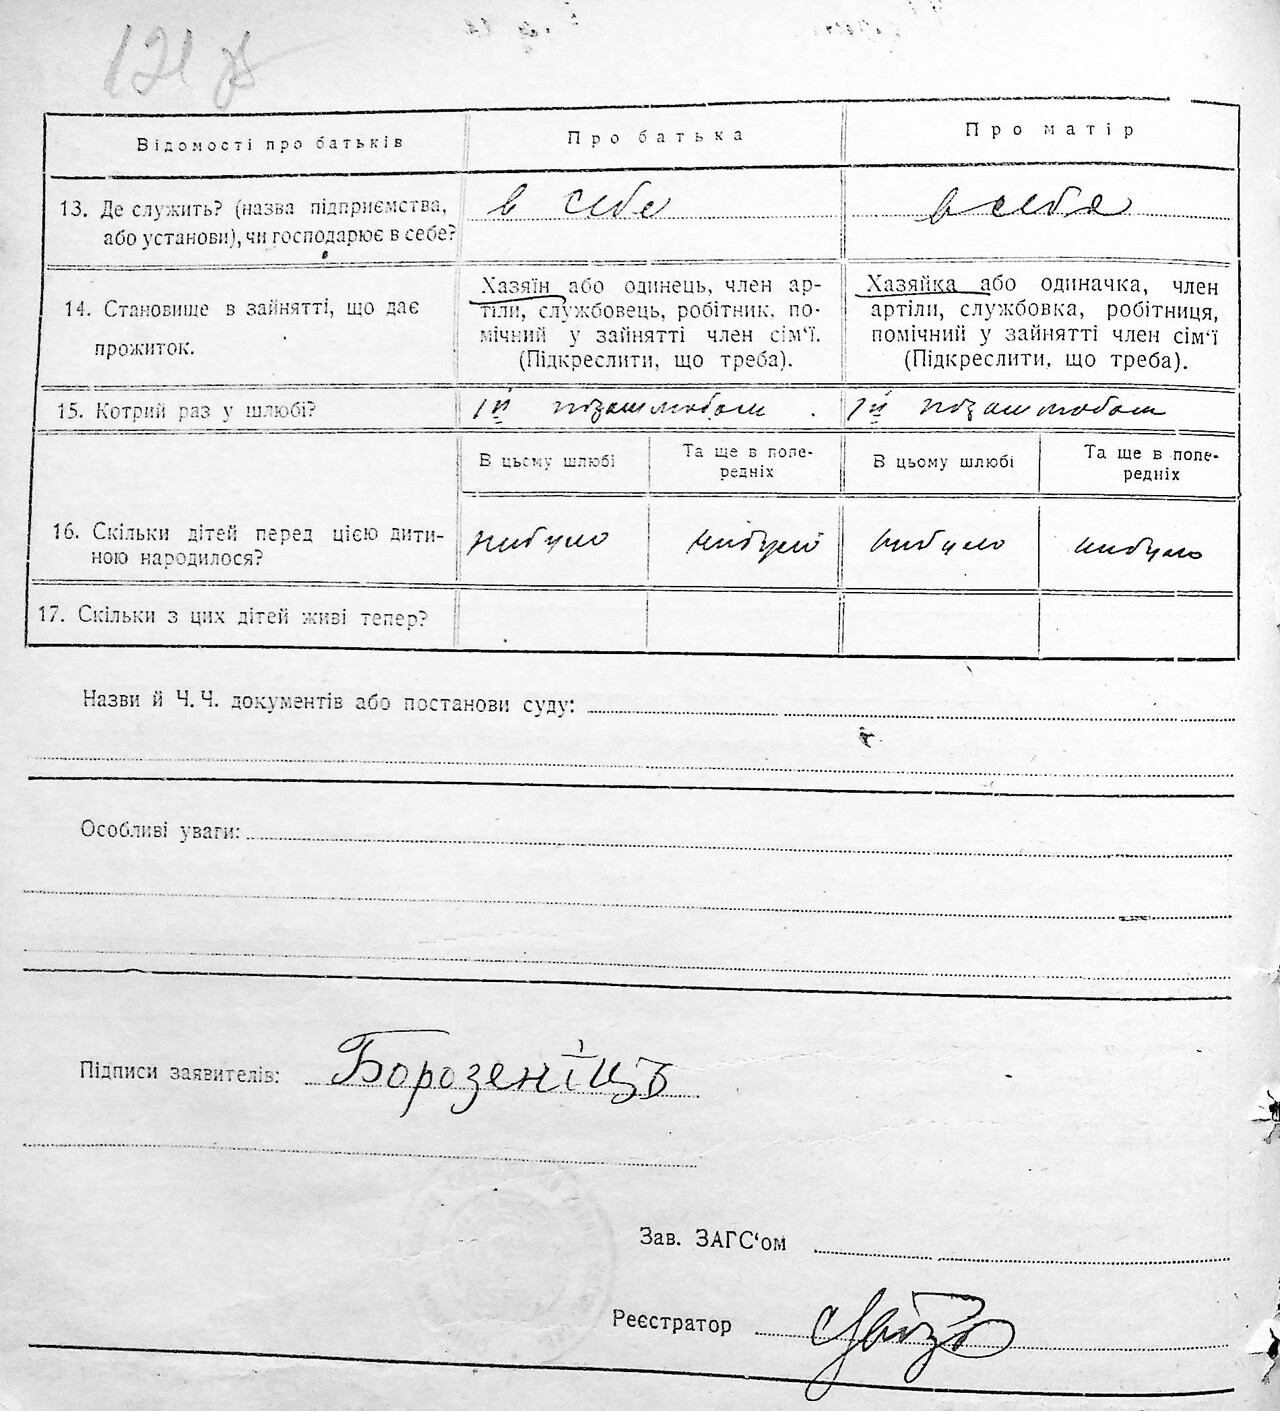 121 зв
Відомості про батьків
Про батька
Про матір
13. Де служить? (назва підприємства,
або установи), чи господарює в себе?
в себе
в себе
14. Становище в зайнятті, що дає
прожиток.
Хазяїн або одинець, член ар-
тіли, службовець, робітник, по-
мічний у зайнятті член сім‘ї.
(Підкреслити, що треба).
Хазяйка або одиначка, член
артіли, службовка, робітниця,
помічний у зайнятті член сім‘ї
(Підкреслити, що треба).
15. Котрий раз у шлюбі?
1й позашлюбом
1й позашлюбом
В цьому шлюбі
Та ще в попе-
редніх
В цьому шлюбі
Та ще в попе-
редніх
16. Скільки дітей перед цією дити-
ною народилося?
небуло
небуло
небуло
небуло
17. Скільки з цих дітей живі тепер?
Назви й Ч. Ч. документів або постанови суду:
Особливі уваги:
Підписи заявителів: Борозеніць
Зав. ЗАГС‘ом
Реєстратор